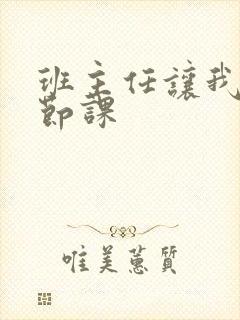 班主任讓我
節課
唯美蕙質